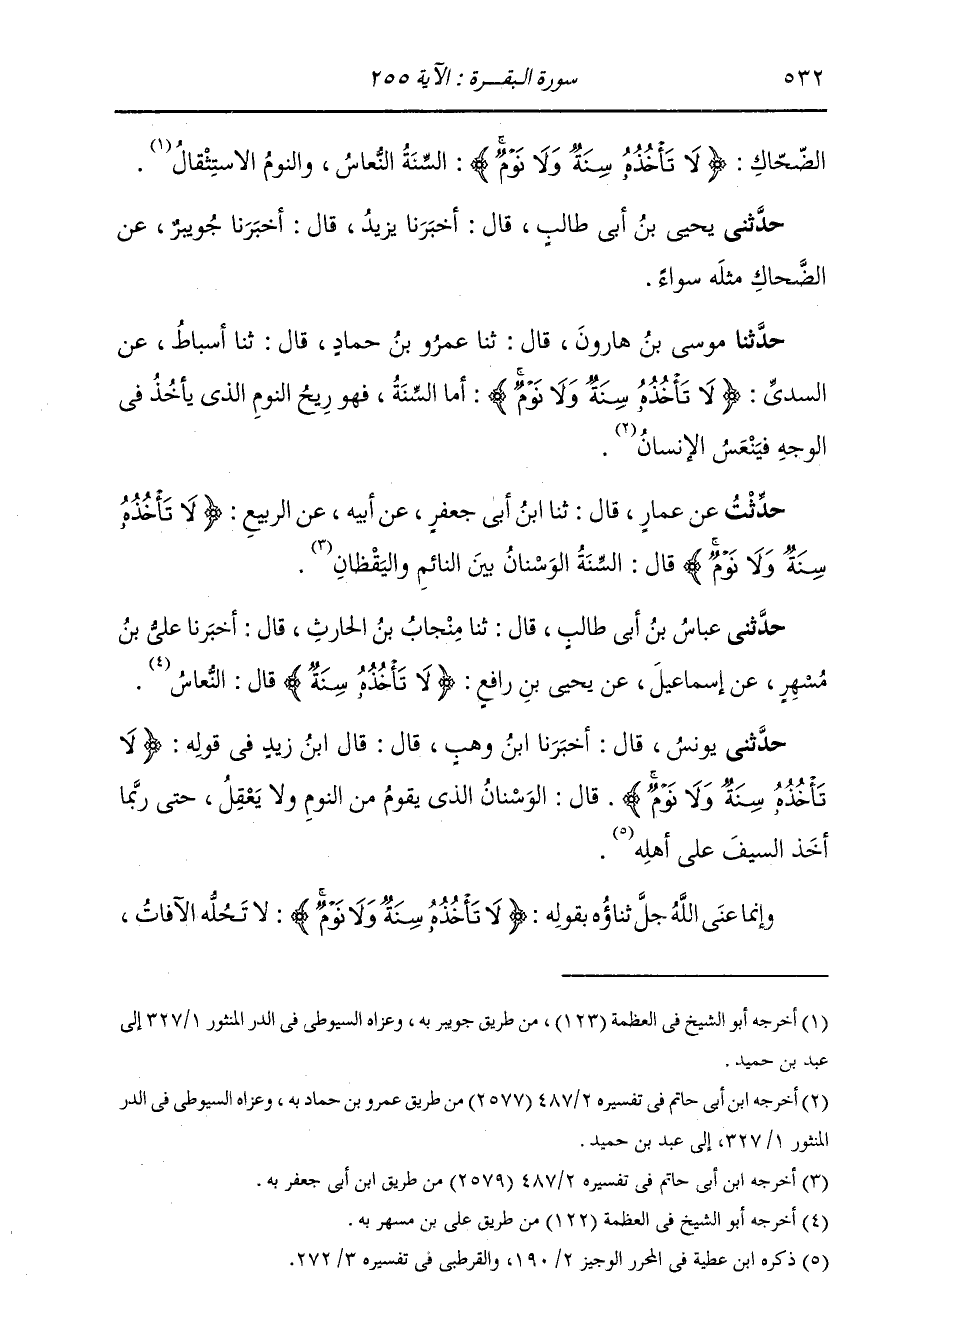 ٥٣٢ سورة البقـــرة : الآية ٢٥٥
الضّحّاكِ : ﴿ لَا تَأْخُذُهُۥ سِنَةٌ وَلَا نَوْمٌۚ ﴾ : السِّنَةُ النُّعاسُ ، والنومُ الاستِثْقالُ(١) .
حدَّثنى يحيى بنُ أبى طالبٍ ، قال : أخبَرَنا يزيدُ ، قال : أخبَرَنا جُويبرٌ ، عن
الضَّحاكِ مثلَه سواءً .
حدَّثنا موسى بنُ هارونَ ، قال : ثنا عمرُو بنُ حمادٍ ، قال : ثنا أسباطُ ، عن
السدىِّ : ﴿ لَا تَأْخُذُهُۥ سِنَةٌ وَلَا نَوْمٌۚ ﴾ : أما السِّنَةُ ، فهو رِيحُ النومِ الذى يأخُذُ فى
الوجهِ فيَنْعَسُ الإنسانُ(٢) .
حدِّثْتُ عن عمارٍ ، قال : ثنا ابنُ أبى جعفرٍ ، عن أبيه ، عن الربيعِ : ﴿ لَا تَأْخُذُهُۥ
سِنَةٌ وَلَا نَوْمٌۚ ﴾ قال : السِّنَةُ الوَسْنانُ بينَ النائمِ واليَقْظانِ(٣) .
حدَّثنى عباسُ بنُ أبى طالبٍ ، قال : ثنا مِنْجابُ بنُ الحارثِ ، قال : أخبَرنا علىُّ بنُ
مُسْهِرٍ ، عن إسماعيلَ ، عن يحيى بنِ رافعٍ : ﴿ لَا تَأْخُذُهُۥ سِنَةٌ ﴾ قال : النُّعاسُ(٤) .
حدَّثنى يونسُ ، قال : أخبَرَنا ابنُ وهبٍ ، قال : قال ابنُ زيدٍ فى قولِه : ﴿ لَا
تَأْخُذُهُۥ سِنَةٌ وَلَا نَوْمٌۚ ﴾ . قال : الوَسْنانُ الذى يقومُ من النومِ ولا يَعْقِلُ ، حتى ربَّما
أخَذ السيفَ على أهلِه(٥) .
وإنما عنَى اللَّهُ جلَّ ثناؤُه بقولِه : ﴿ لَا تَأْخُذُهُۥ سِنَةٌ وَلَا نَوْمٌۚ ﴾ : لا تَحُلُّه الآفاتُ ،
(١) أخرجه أبو الشيخ فى العظمة (١٢٣) ، من طريق جويبر به ، وعزاه السيوطى فى الدر المنثور ٣٢٧/١ إلى
عبد بن حميد .
(٢) أخرجه ابن أبى حاتم فى تفسيره ٤٨٧/٢ (٢٥٧٧) من طريق عمرو بن حماد به ، وعزاه السيوطى فى الدر
المنثور ٣٢٧/١، إلى عبد بن حميد .
(٣) أخرجه ابن أبى حاتم فى تفسيره ٤٨٧/٢ (٢٥٧٩) من طريق ابن أبى جعفر به .
(٤) أخرجه أبو الشيخ فى العظمة (١٢٢) من طريق على بن مسهر به .
(٥) ذكره ابن عطية فى المحرر الوجيز ١٩٠/٢، والقرطبى فى تفسيره ٢٧٢/٣.